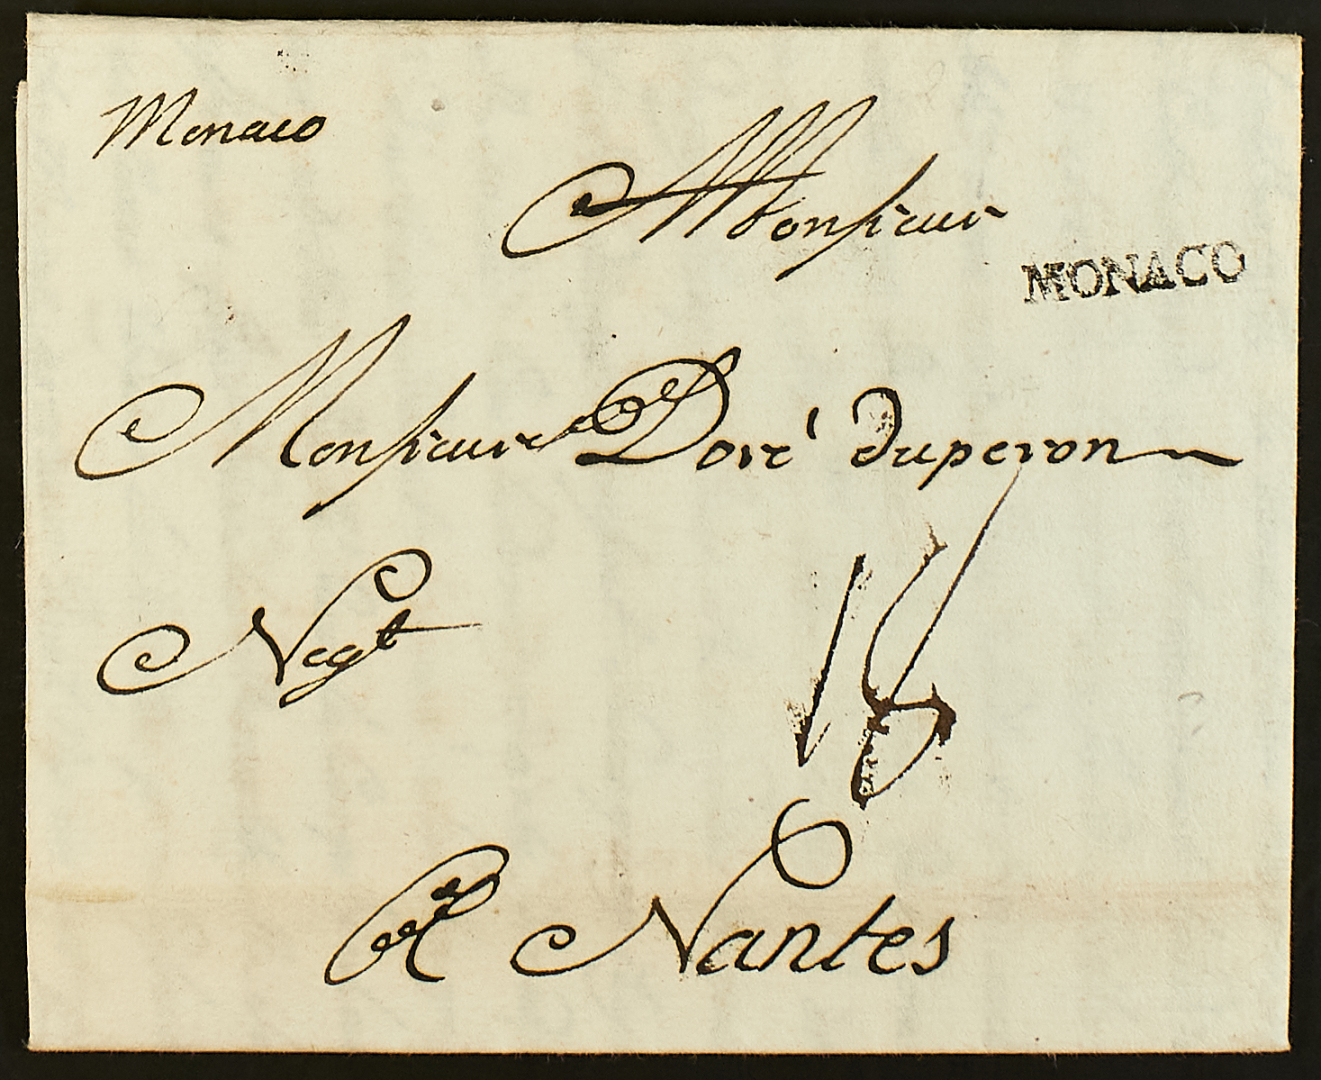 Monaco
Monsieur
MONACO
Monsieur Doré duperon
Negt
18
A Nantes